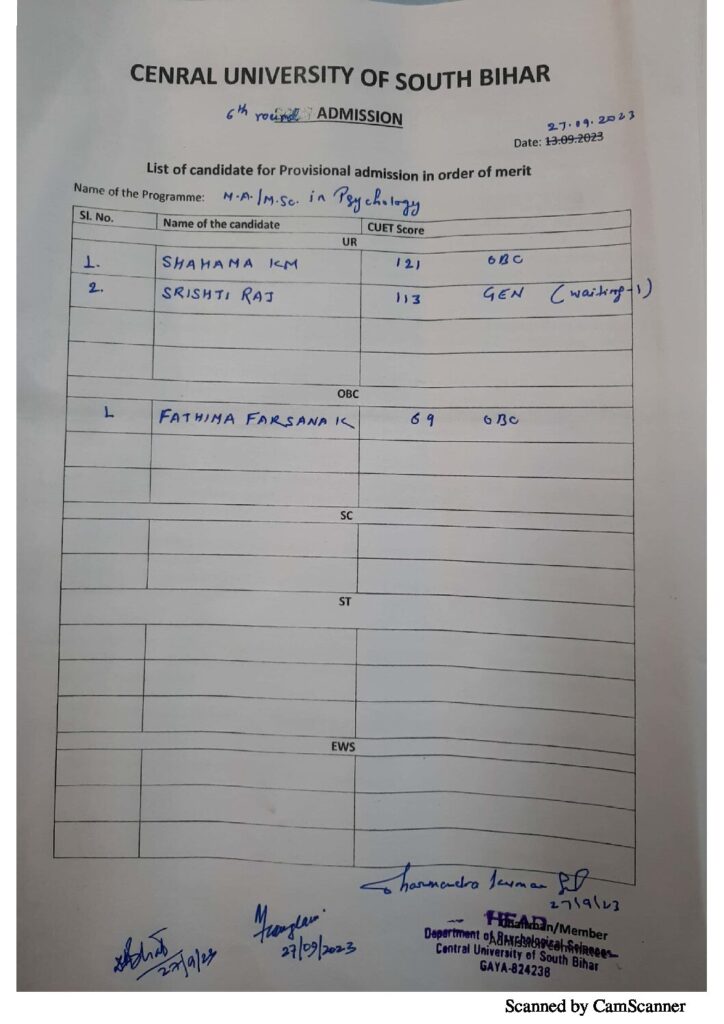 CENRAL UNIVERSITY OF SOUTH BIHAR
6th round ADMISSION
27.09.2023
Date: 13.09.2023
List of candidate for Provisional admission in order of merit
Name of the Programme: M.A./M.Sc. in Psychology
Sl. No. Name of the candidate CUET Score
UR
1. SHAHAMA KM 121 OBC
2. SRISHTI RAJ 113 GEN (waiting-1)
OBC
1 FATHIMA FARSANA K 69 OBC
SC
ST
EWS
27/9/23
27/09/2023
27/9/23
HEAD
Chairman/Member
Department of Psychological Sciences
Admission Committee
Central University of South Bihar
GAYA-824236
Scanned by CamScanner